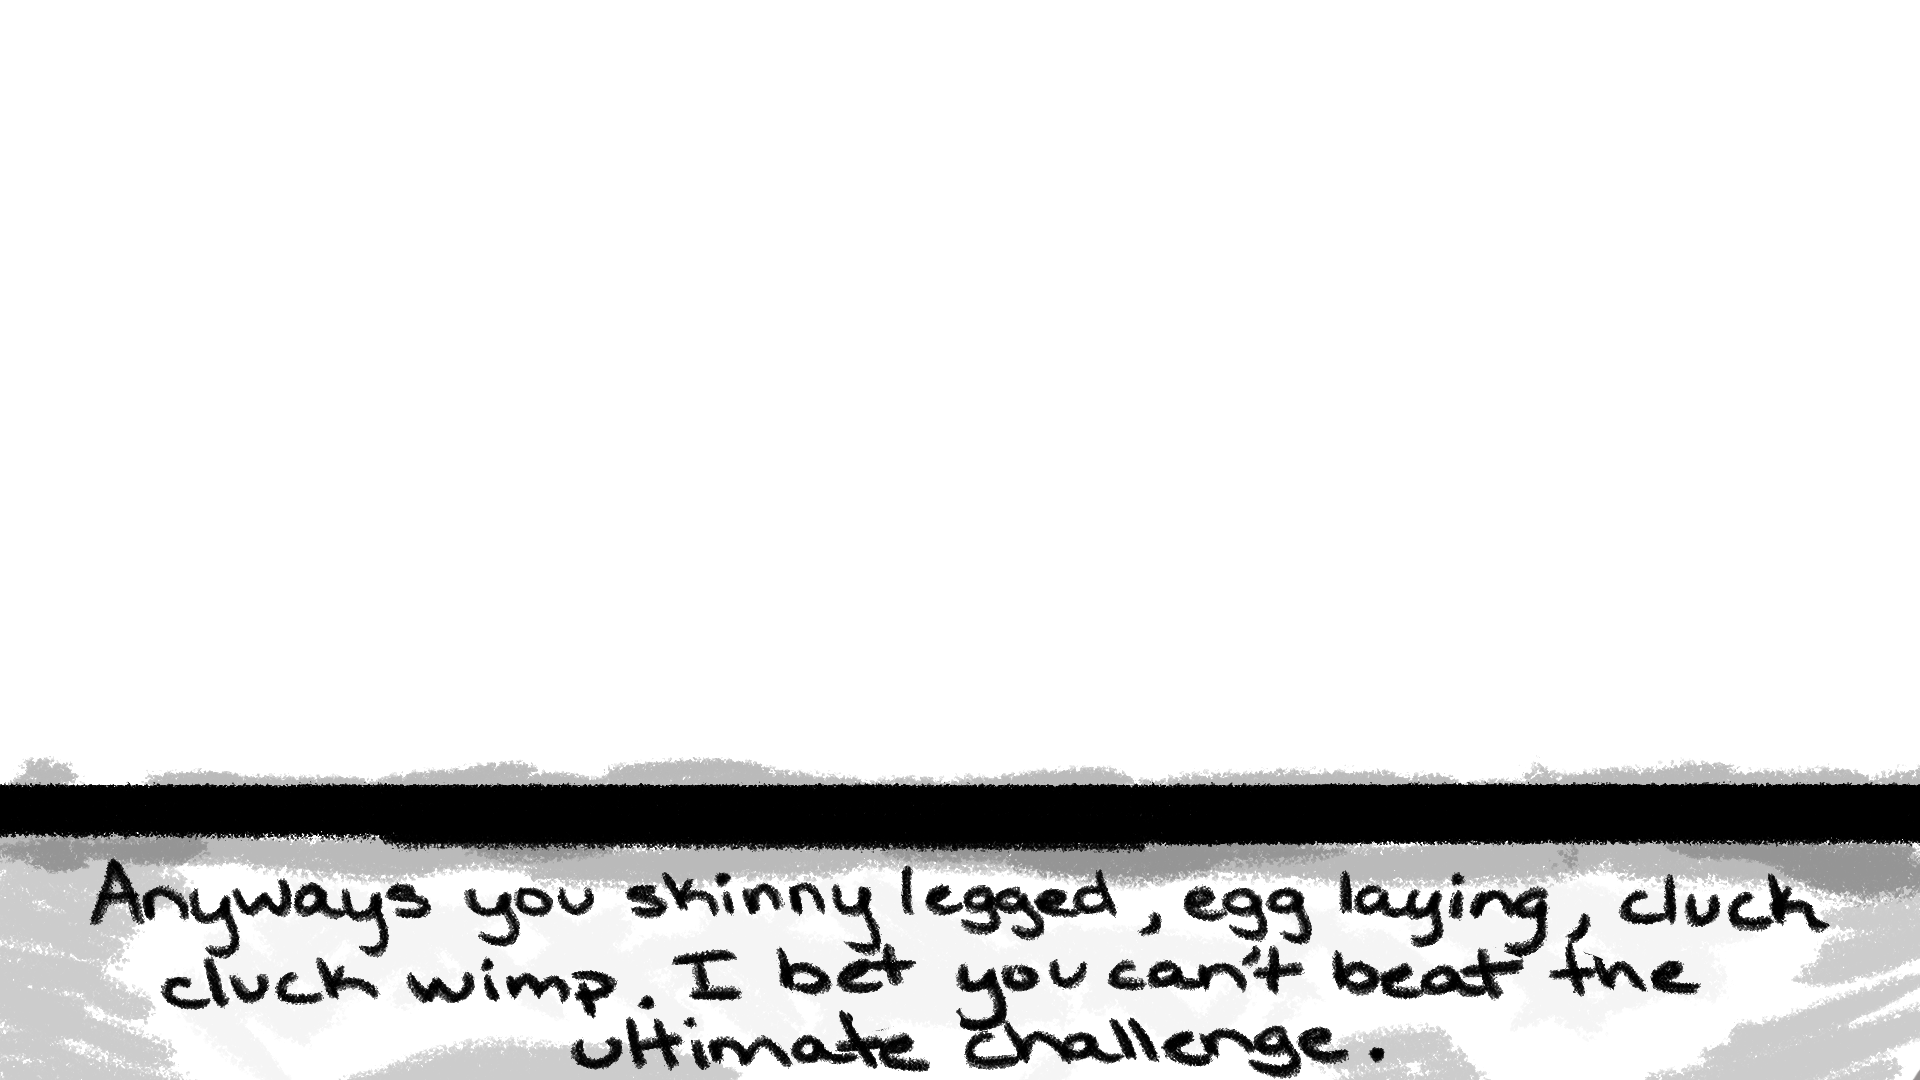 Anyways you skinny legged, egg laying, cluck
cluck wimp. I bet you can't beat the
ultimate challenge.